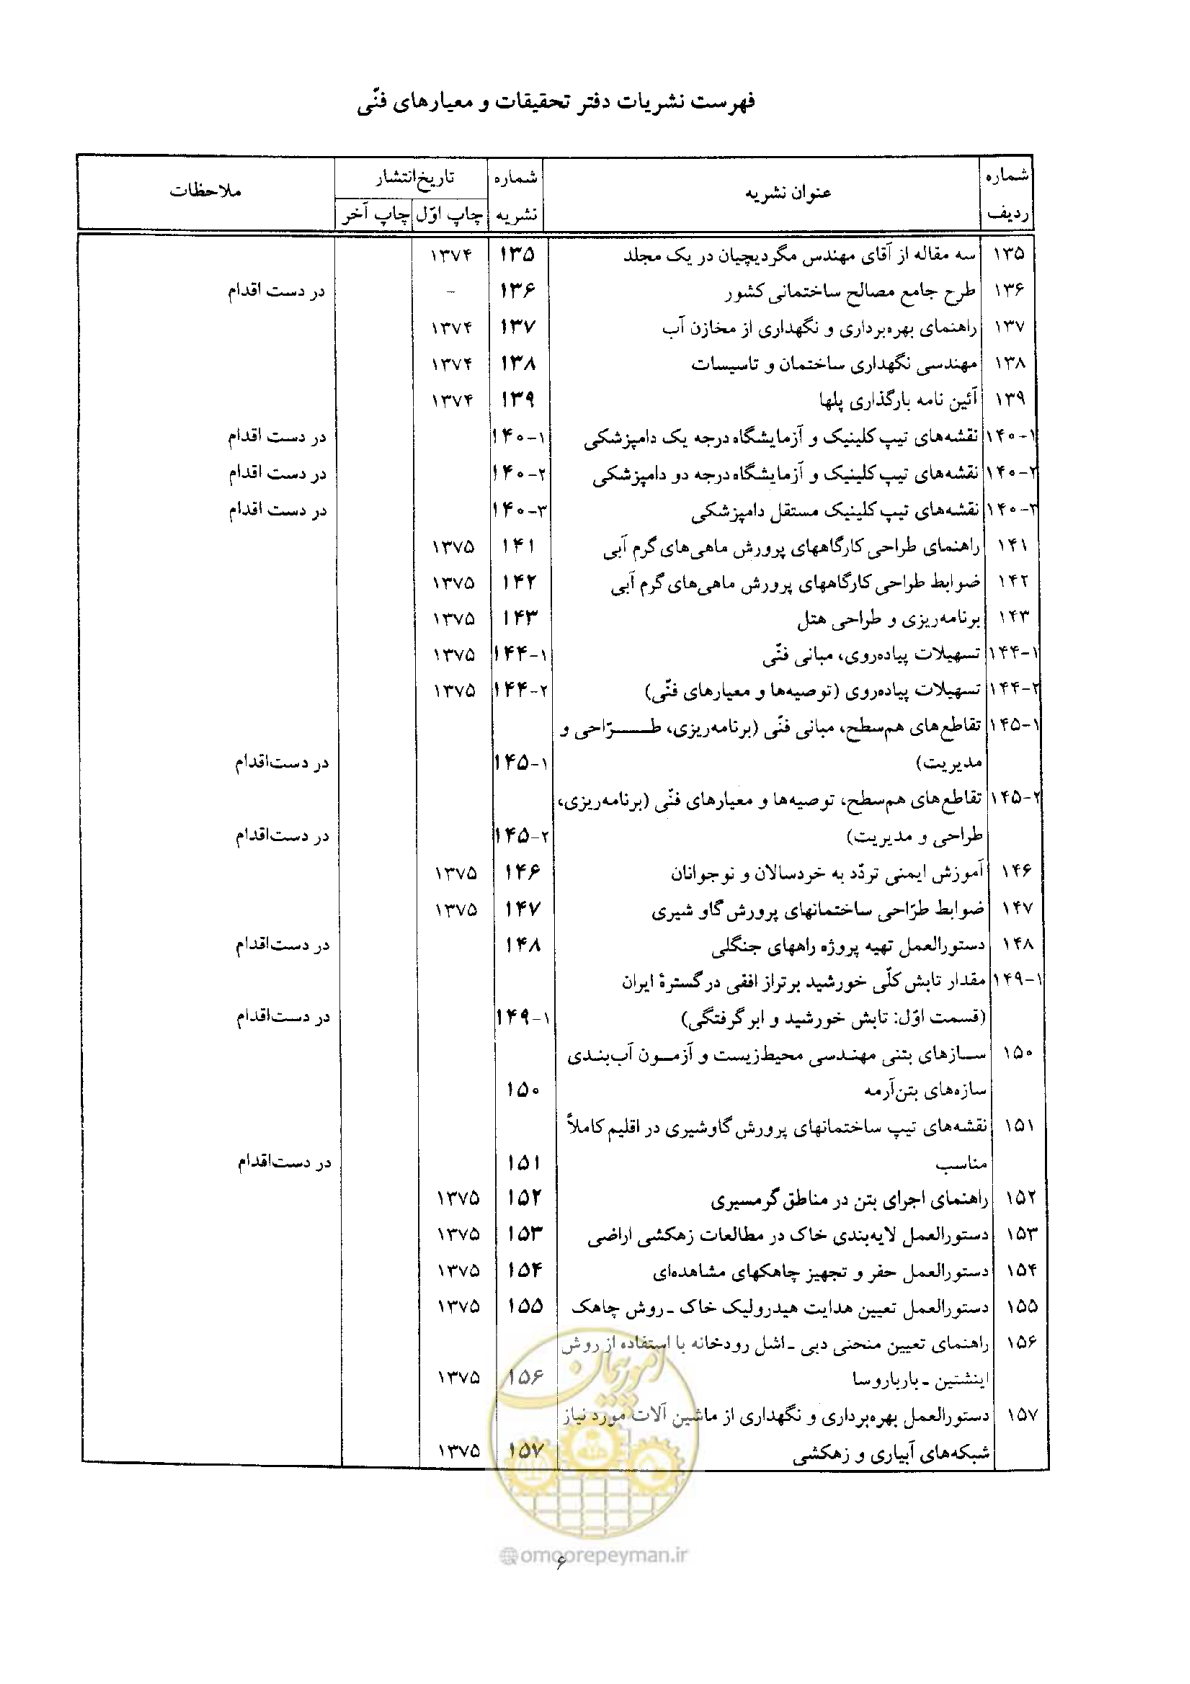 فهرست نشریات دفتر تحقیقات و معیارهای فنّی
شماره ردیف عنوان نشریه شماره نشریه تاریخ‌انتشار چاپ اوّل چاپ آخر ملاحظات
۱۳۵ سه مقاله از آقای مهندس مگردیچیان در یک مجلد ۱۳۵ ۱۳۷۴
۱۳۶ طرح جامع مصالح ساختمانی کشور ۱۳۶ - در دست اقدام
۱۳۷ راهنمای بهره‌برداری و نگهداری از مخازن آب ۱۳۷ ۱۳۷۴
۱۳۸ مهندسی نگهداری ساختمان و تاسیسات ۱۳۸ ۱۳۷۴
۱۳۹ آئین نامه بارگذاری پلها ۱۳۹ ۱۳۷۴
۱۴۰-۱ نقشه‌های تیپ کلینیک و آزمایشگاه درجه یک دامپزشکی ۱۴۰-۱ در دست اقدام
۱۴۰-۲ نقشه‌های تیپ کلینیک و آزمایشگاه درجه دو دامپزشکی ۱۴۰-۲ در دست اقدام
۱۴۰-۳ نقشه‌های تیپ کلینیک مستقل دامپزشکی ۱۴۰-۳ در دست اقدام
۱۴۱ راهنمای طراحی کارگاههای پرورش ماهی‌های گرم آبی ۱۴۱ ۱۳۷۵
۱۴۲ ضوابط طراحی کارگاههای پرورش ماهی‌های گرم آبی ۱۴۲ ۱۳۷۵
۱۴۳ برنامه‌ریزی و طراحی هتل ۱۴۳ ۱۳۷۵
۱۴۴-۱ تسهیلات پیاده‌روی، مبانی فنّی ۱۴۴-۱ ۱۳۷۵
۱۴۴-۲ تسهیلات پیاده‌روی (توصیه‌ها و معیارهای فنّی) ۱۴۴-۲ ۱۳۷۵
۱۴۵-۱ تقاطع‌های هم‌سطح، مبانی فنّی (برنامه‌ریزی، طـــرّاحی و
مدیریت) ۱۴۵-۱ در دست‌اقدام
۱۴۵-۲ تقاطع‌های هم‌سطح، توصیه‌ها و معیارهای فنّی (برنامه‌ریزی،
طراحی و مدیریت) ۱۴۵-۲ در دست‌اقدام
۱۴۶ آموزش ایمنی تردّد به خردسالان و نوجوانان ۱۴۶ ۱۳۷۵
۱۴۷ ضوابط طرّاحی ساختمانهای پرورش گاو شیری ۱۴۷ ۱۳۷۵
۱۴۸ دستورالعمل تهیه پروژه راههای جنگلی ۱۴۸ در دست‌اقدام
۱۴۹-۱ مقدار تابش کلّی خورشید برتراز افقی در گسترهٔ ایران
(قسمت اوّل: تابش خورشید و ابر گرفتگی) ۱۴۹-۱ در دست‌اقدام
۱۵۰ ســازهای بتنی مهنـدسی محیط‌زیست و آزمـون آب‌بندی
سازه‌های بتن‌آرمه ۱۵۰
۱۵۱ نقشه‌های تیپ ساختمانهای پرورش گاوشیری در اقلیم کاملاً
مناسب ۱۵۱ در دست‌اقدام
۱۵۲ راهنمای اجرای بتن در مناطق گرمسیری ۱۵۲ ۱۳۷۵
۱۵۳ دستورالعمل لایه‌بندی خاک در مطالعات زهکشی اراضی ۱۵۳ ۱۳۷۵
۱۵۴ دستورالعمل حفر و تجهیز چاهکهای مشاهده‌ای ۱۵۴ ۱۳۷۵
۱۵۵ دستورالعمل تعیین هدایت هیدرولیک خاک ـ روش چاهک ۱۵۵ ۱۳۷۵
۱۵۶ راهنمای تعیین منحنی دبی ـ اشل رودخانه با استفاده از روش
اینشتین ـ بارباروسا ۱۵۶ ۱۳۷۵
۱۵۷ دستورالعمل بهره‌برداری و نگهداری از ماشین آلات مورد نیاز
شبکه‌های آبیاری و زهکشی ۱۵۷ ۱۳۷۵
امور پیمان
@omoorepeyman.ir
۶